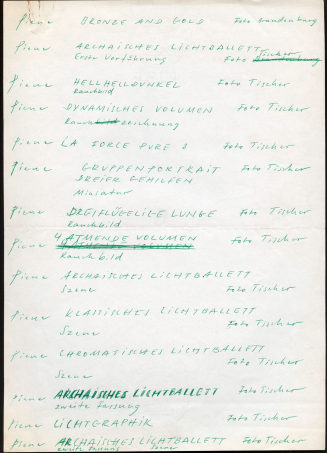 Piene BRONZE AND GOLD Foto Brandenburg
Piene ARCHAISCHES LICHTBALLETT Tischer
Erste Vorführung Foto
Piene HELLHELLDUNKEL Foto Tischer
Rauchbild
Piene DYNAMISCHES VOLUMEN Foto Tischer
Rauchzeichnung
Piene LA FORCE PURE I Foto Tischer
Piene GRUPPENPORTRAIT Foto Tischer
DREIER GEHILFEN
Miniatur
Piene DREIFLÜGELIGE LUNGE Foto Tischer
Rauchbild
Piene 4 ATMENDE VOLUMEN Foto Tischer
Rauchbild
Piene ARCHAISCHES LICHTBALLETT
Szene Foto Tischer
Piene KLASSISCHES LICHTBALLETT
Szene Foto Tischer
Piene CHROMATISCHES LICHTBALLETT
Foto Tischer
Szene
Piene ARCHAISCHES LICHTBALLETT Foto Tischer
zweite Fassung
Piene LICHTGRAPHIK Foto Tischer
Piene ARCHAISCHES LICHTBALLETT Foto Tischer
zweite Fassung Szene